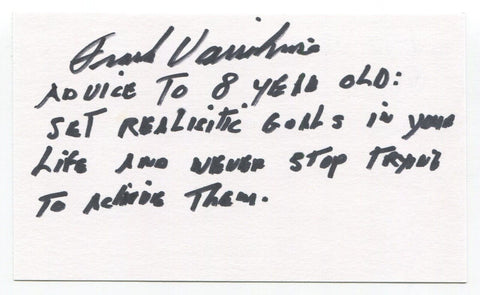 Frank
ADVICE TO 8 YEAR OLD:
SET REALISITIC GOALS in your
Life AND NEVER STOP TRYING
TO ACHIEVE THEM.